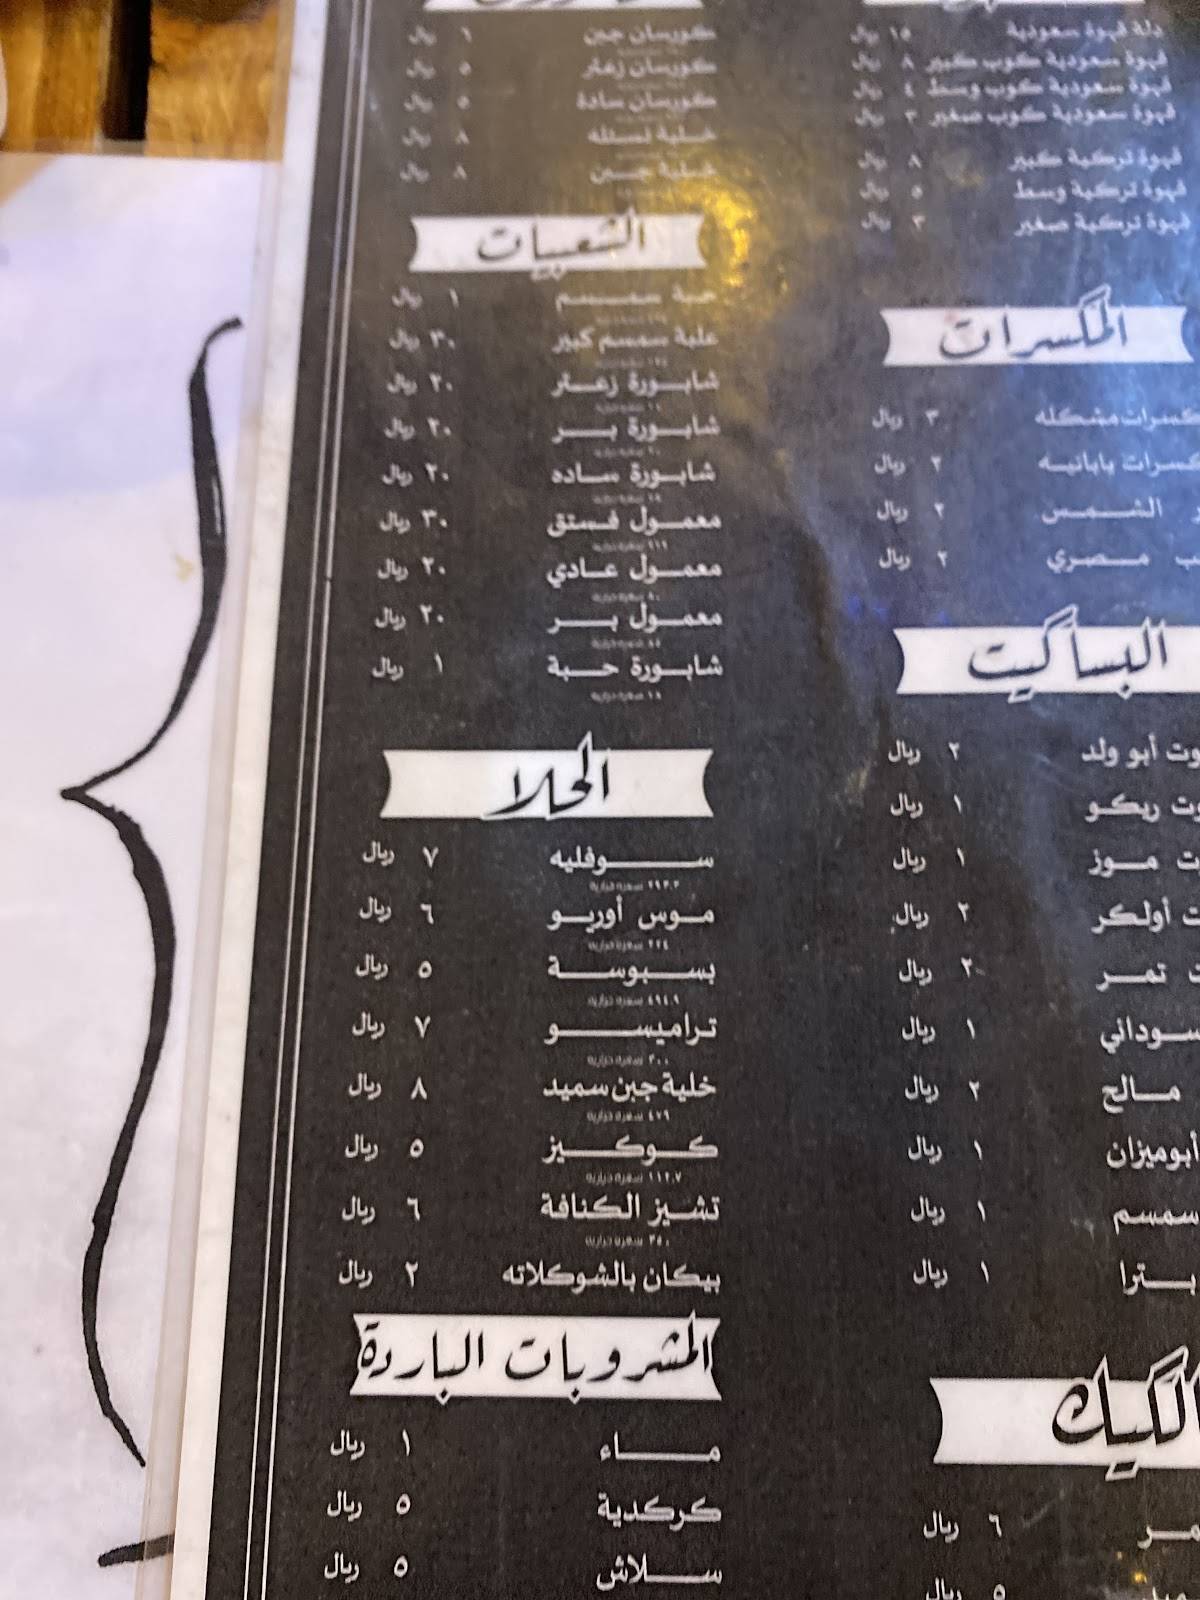 دلة قهوة سعودية ١٥ ريال
قهوة سعودية كوب كبير ٨ ريال
قهوة سعودية كوب وسط ٤ ريال
قهوة سعودية كوب صغير ٣ ريال
قهوة تركية كبير ٨ ريال
قهوة تركية وسط ٥ ريال
قهوة تركية صغير ٣ ريال
المكسرات
مشكله ٣ ريال
يابانيه ٢ ريال
الشمس ٢ ريال
مصري ٢ ريال
البساكيت
أبو ولد ٢ ريال
ريكو ١ ريال
موز ١ ريال
أولكر ٢ ريال
تمر ٢ ريال
سوداني ١ ريال
مالح ٢ ريال
أبوميزان ١ ريال
سمسم ١ ريال
بترا ١ ريال
الكيك
٦ ريال
٥ ريال
كورسان جبن ٦ ريال
كورسان زعتر ٥ ريال
كورسان سادة ٥ ريال
خلية نستله ٨ ريال
خلية جبن ٨ ريال
الشعبيات
حبة سمسم ١ ريال
علبة سمسم كبير ٣٠ ريال
شابورة زعتر ٢٠ ريال
شابورة بر ٢٠ ريال
شابورة ساده ٢٠ ريال
معمول فستق ٣٠ ريال
معمول عادي ٢٠ ريال
معمول بر ٢٠ ريال
شابورة حبة ١ ريال
الحلا
سوفليه ٧ ريال
موس أوريو ٦ ريال
٢٢٤ سعرة حرارية
بسبوسة ٥ ريال
٤٩٤.٩ سعرة حرارية
تراميسو ٧ ريال
٣٠٠ سعرة حرارية
خلية جبن سميد ٨ ريال
٤٧٩ سعرة حرارية
كوكيز ٥ ريال
تشيز الكنافة ٦ ريال
٣٥٠ سعرة حرارية
بيكان بالشوكلاته ٢ ريال
المشروبات الباردة
ماء ١ ريال
كركدية ٥ ريال
سلاش ٥ ريال